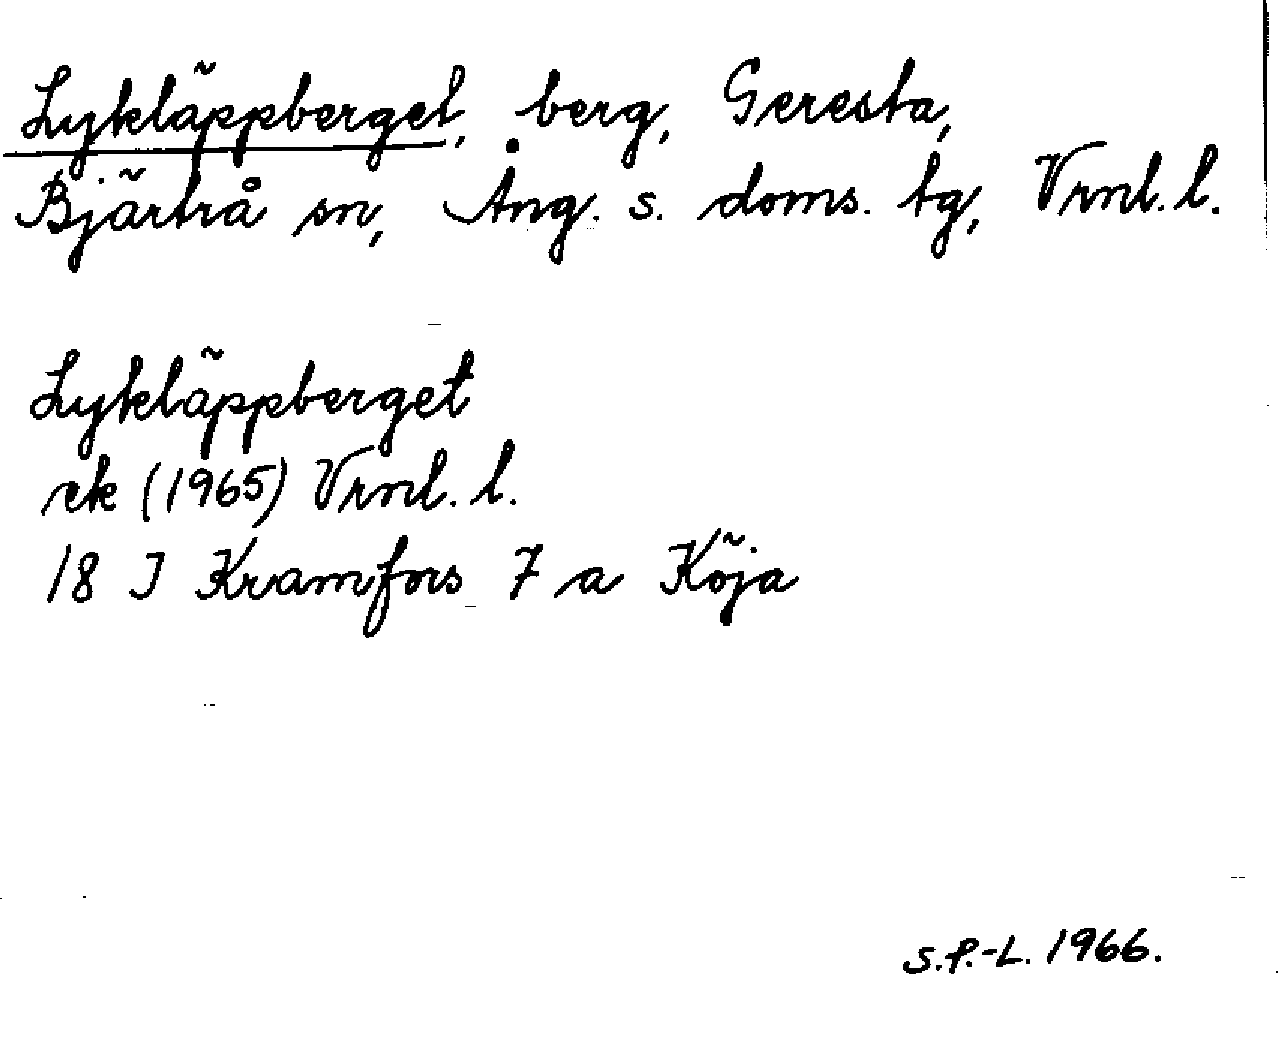 Lykläppberget, berg, Geresta,
Bjärtrå sn, Ång. s. doms. tg, Vrnl. l.
Lykläppberget
rk (1965) Vrnl. l.
18 I Kramfors 7 a Köja
S.P.-L. 1966.